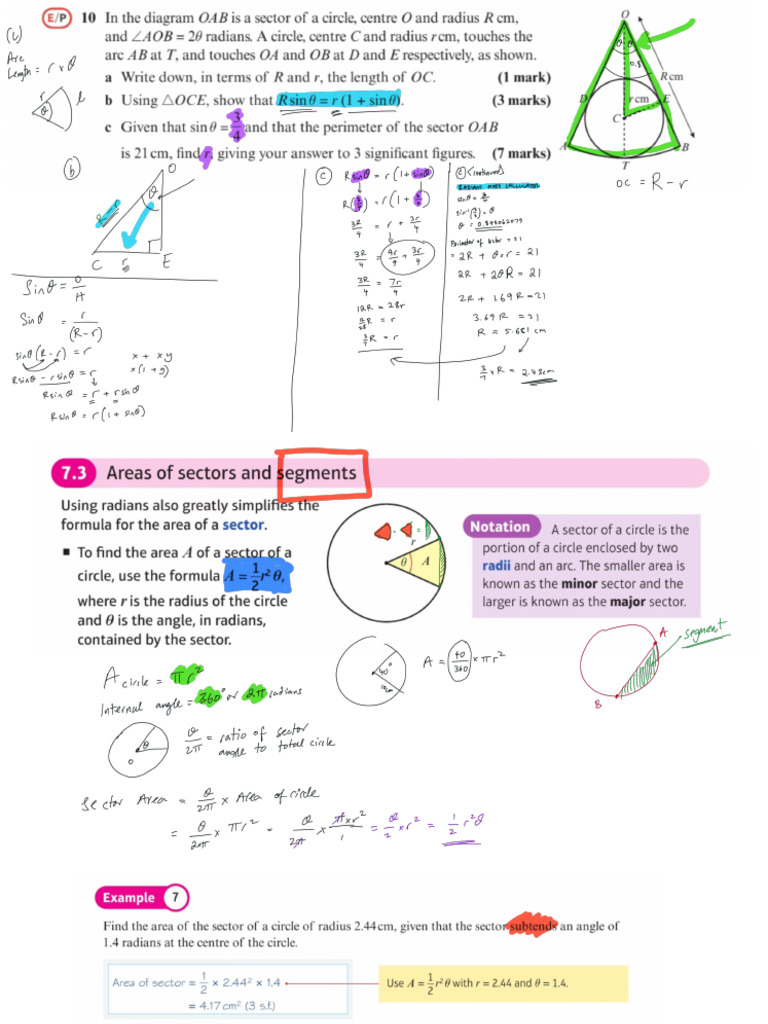 E/P 10 In the diagram OAB is a sector of a circle, centre O and radius R cm,
and ∠AOB = 2θ radians. A circle, centre C and radius r cm, touches the
arc AB at T, and touches OA and OB at D and E respectively, as shown.
a Write down, in terms of R and r, the length of OC. (1 mark)
b Using △OCE, show that R sin θ = r (1 + sin θ). (3 marks)
c Given that sin θ = 3/4 and that the perimeter of the sector OAB
is 21 cm, find r, giving your answer to 3 significant figures. (7 marks)
Arc
Length = r × θ
r
θ
l
O
θ θ
0.5
R cm
D
r cm
E
C
A
B
T
OC = R - r
(b)
O
θ
R-r
C
r
E
Sinθ = O/H
Sinθ = r/(R-r)
sinθ(R-r) = r
Rsinθ - rsinθ = r
Rsinθ = r + rsinθ
Rsinθ = r(1 + sinθ)
x + xy
x(1 + y)
(c)
Rsinθ = r(1 + sinθ)
R(3/4) = r(1 + 3/4)
3R/4 = r + 3r/4
3R/4 = 4r/4 + 3r/4
3R/4 = 7r/4
12R = 28r
12/28 R = r
3/7 R = r
(c) (continued)
RADIANS MODE CALCULATOR
sinθ = 3/4
sin⁻¹(3/4) = θ
θ = 0.848062079
Perimeter of sector = 21
= 2R + θ × r = 21
2R + 2θR = 21
2R + 1.69R = 21
3.69R = 21
R = 5.681 cm
3/7 × R = 2.43cm
7.3 Areas of sectors and segments
Using radians also greatly simplifies the
formula for the area of a sector.
■ To find the area A of a sector of a
circle, use the formula A = 1/2 r²θ,
where r is the radius of the circle
and θ is the angle, in radians,
contained by the sector.
- =
r
θ
A
Notation A sector of a circle is the
portion of a circle enclosed by two
radii and an arc. The smaller area is
known as the minor sector and the
larger is known as the major sector.
A circle = πr²
Internal angle = 360° or 2π radians
40°
10cm
A = 40/360 × πr²
A
segment
B
θ
O
θ/2π = ratio of sector
angle to total circle
Sector Area = θ/2π × Area of circle
= θ/2π × πr² = θ/2π × π×r²/1 = θ/2 × r² = 1/2 r²θ
Example 7
Find the area of the sector of a circle of radius 2.44 cm, given that the sector subtends an angle of
1.4 radians at the centre of the circle.
Area of sector = 1/2 × 2.44² × 1.4
= 4.17 cm² (3 s.f.)
Use A = 1/2 r²θ with r = 2.44 and θ = 1.4.